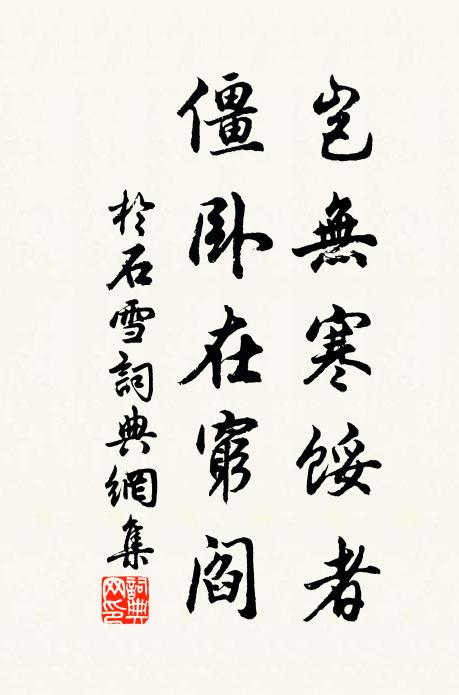 岂無寒餒者
僵卧在窮阎
於石雪詞典網集
詞典网印